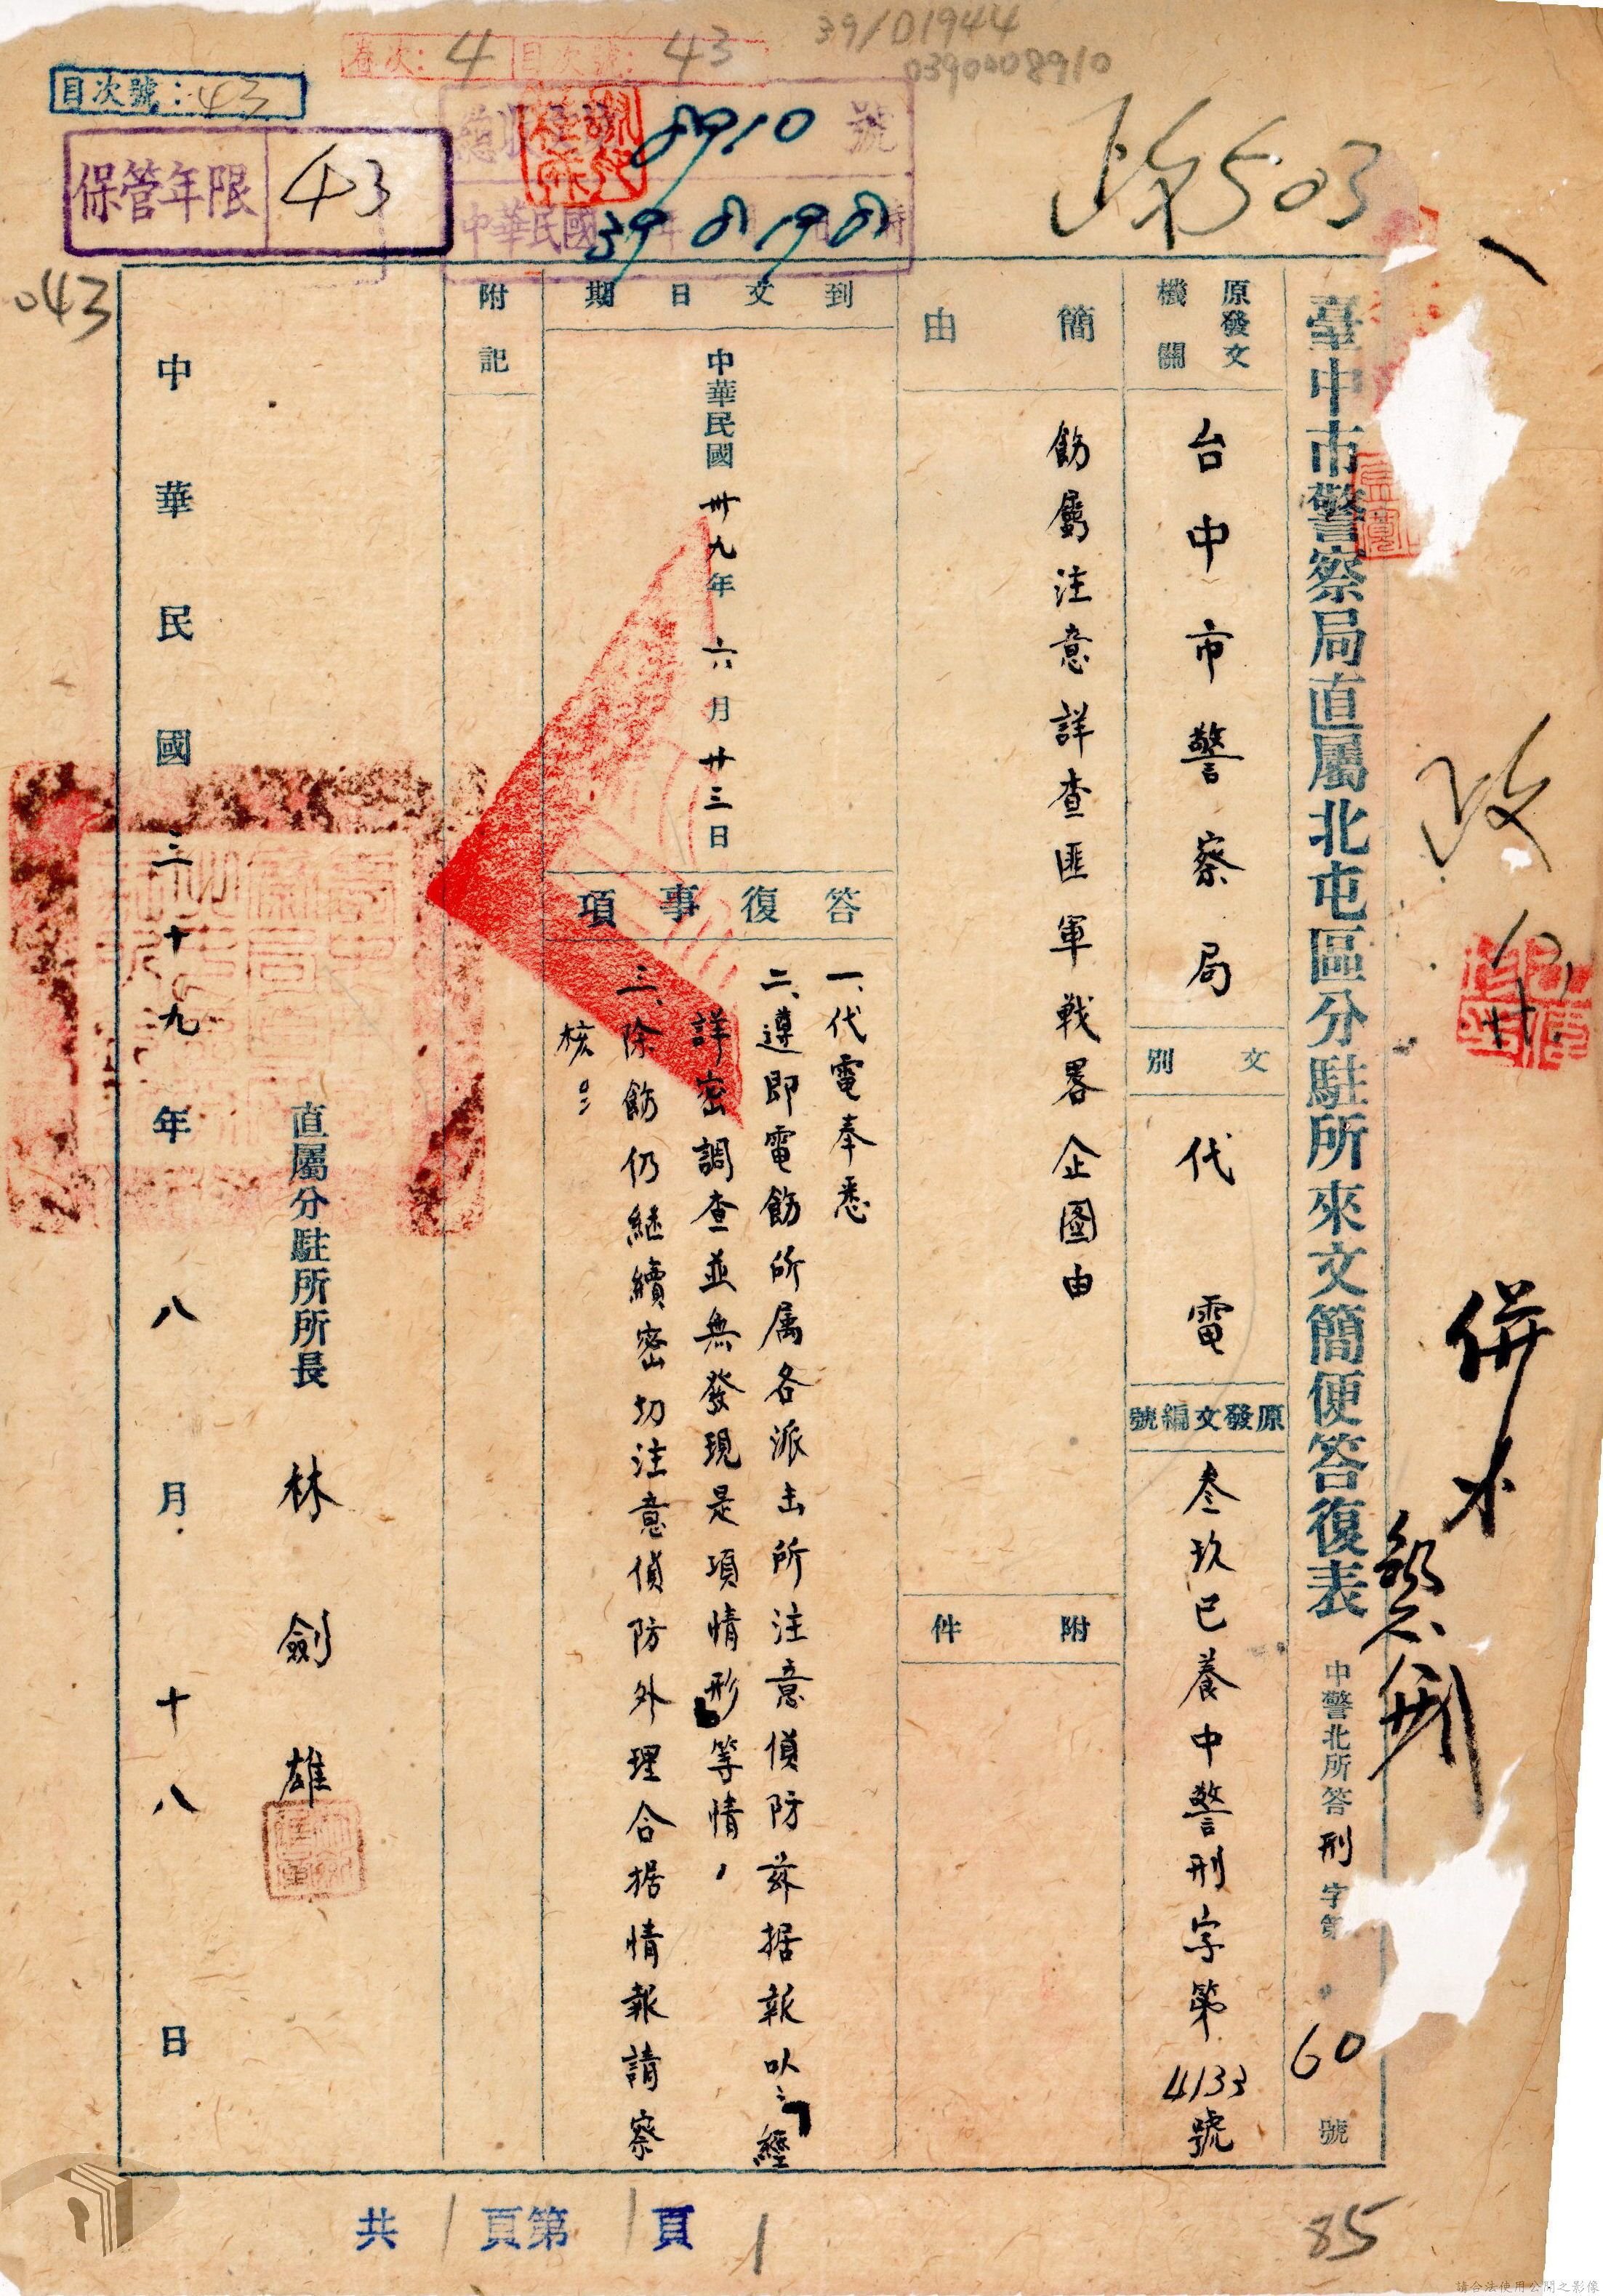 39/D1944
0390008910
卷次：4 目次號：43
目次號：43
保管年限 43
總收文 8910 號
中華民國 39 8 19
政503
043
臺中市警察局直屬北屯區分駐所來文簡便答復表
中警北所答刑字第 60 號
原發文機關
台中市警察局
文別
代電
原發文編號
叁玖已養中警刑字第4133號
簡由
飭屬注意詳查匪軍戰畧企圖由
附件
到文日期
中華民國卅九年六月廿三日
答復事項
一、代電奉悉
二、遵即電飭所属各派出所注意偵防茲据報以「經
詳密調查並無發現是項情形」等情，
三、除飭仍継續密切注意偵防外理合据情報請察
核。
附記
直屬分駐所所長 林劍雄
中華民國三十九年八月十八日
政
併
共 1 頁第 1 頁
1
85
請合法使用公開之影像